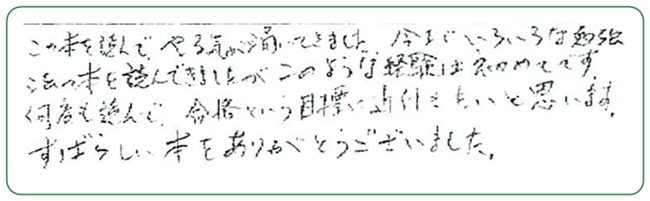 この本を読んで やる気が湧いてきました。今までいろいろな勉強
法の本を読んできましたが このような経験は初めてです。
何度も読んで、合格という目標に近付きたいと思います。
すばらしい本をありがとうございました。